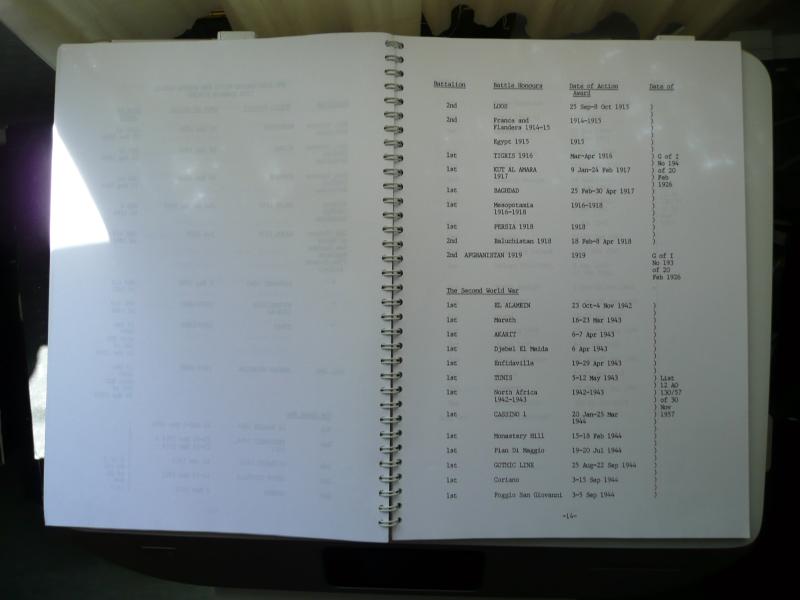 Battalion Battle Honours Date of Action Date of
Award
2nd LOOS 25 Sep-8 Oct 1915 )
2nd France and 1914-1915 )
Flanders 1914-15 )
Egypt 1915 1915 )
1st TIGRIS 1916 Mar-Apr 1916 ) G of I
) No 194
1st KUT AL AMARA 9 Jan-24 Feb 1917 ) of 20
1917 ) Feb
) 1926
1st BAGHDAD 25 Feb-30 Apr 1917 )
1st Mesopotamia 1916-1918 )
1916-1918 )
1st PERSIA 1918 1918 )
2nd Baluchistan 1918 18 Feb-8 Apr 1918 )
2nd AFGHANISTAN 1919 1919 G of I
No 193
of 20
Feb 1926
The Second World War
1st EL ALAMEIN 23 Oct-4 Nov 1942 )
1st Mareth 16-23 Mar 1943 )
1st AKARIT 6-7 Apr 1943 )
1st Djebel El Meida 6 Apr 1943 )
1st Enfidaville 19-29 Apr 1943 )
1st TUNIS 5-12 May 1943 ) List
) 12 AO
1st North Africa 1942-1943 ) 130/57
1942-1943 ) of 30
) Nov
1st CASSINO 1 20 Jan-25 Mar ) 1957
1944 )
1st Monastery Hill 15-18 Feb 1944 )
1st Pian Di Maggio 19-20 Jul 1944 )
1st GOTHIC LINE 25 Aug-22 Sep 1944 )
1st Coriano 3-15 Sep 1944 )
1st Poggio San Giovanni 3-5 Sep 1944 )
-14-